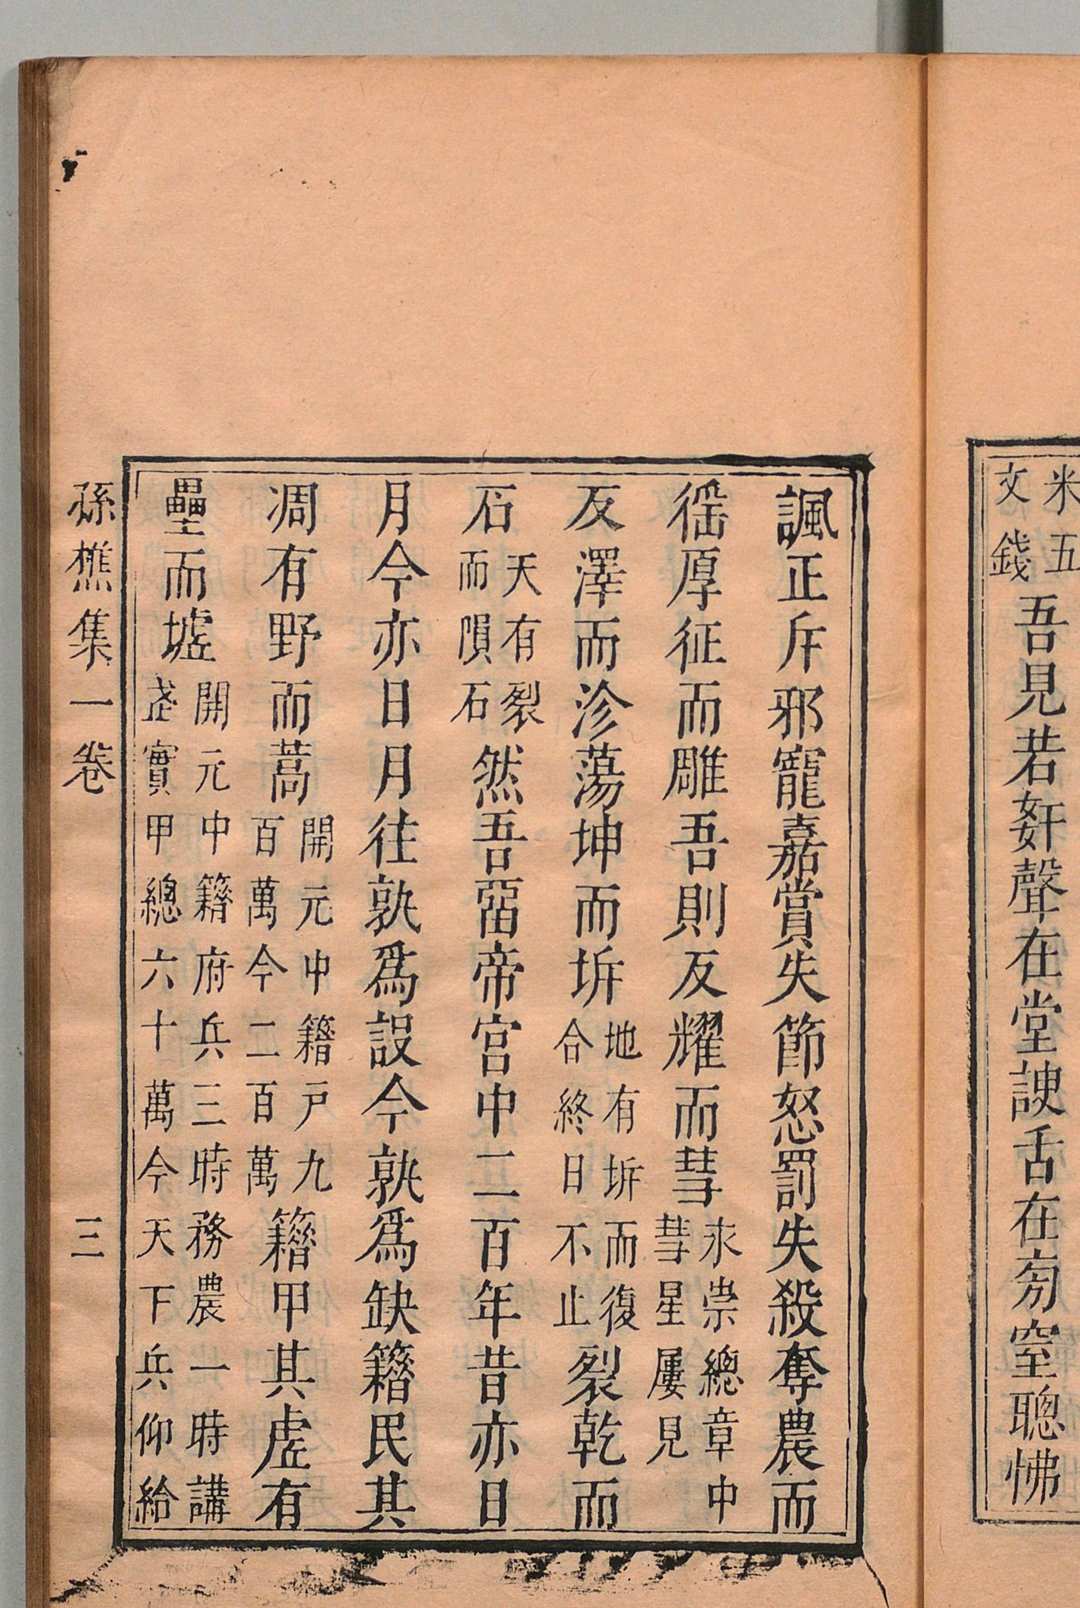 米五
文錢
吾見若姧聲在堂諛舌在旁窒聰怫
諷正斥邪寵嘉賞失節怒罰失殺奪農而
徭厚征而雕吾則反耀而彗
永崇總章中
彗星屢見
反澤而沴蕩坤而坼
地有坼而復
合終日不止
裂乾而
石
天有裂
而隕石
然吾留帝宮中二百年昔亦日
月今亦日月往孰爲設今孰爲缺籍民其
凋有野而蒿
開元中籍戸九
百萬今二百萬
籍甲其虗有
壘而墟
開元中籍府兵三時務農一時講
武實甲總六十萬今天下兵仰給
孫樵集一卷
三